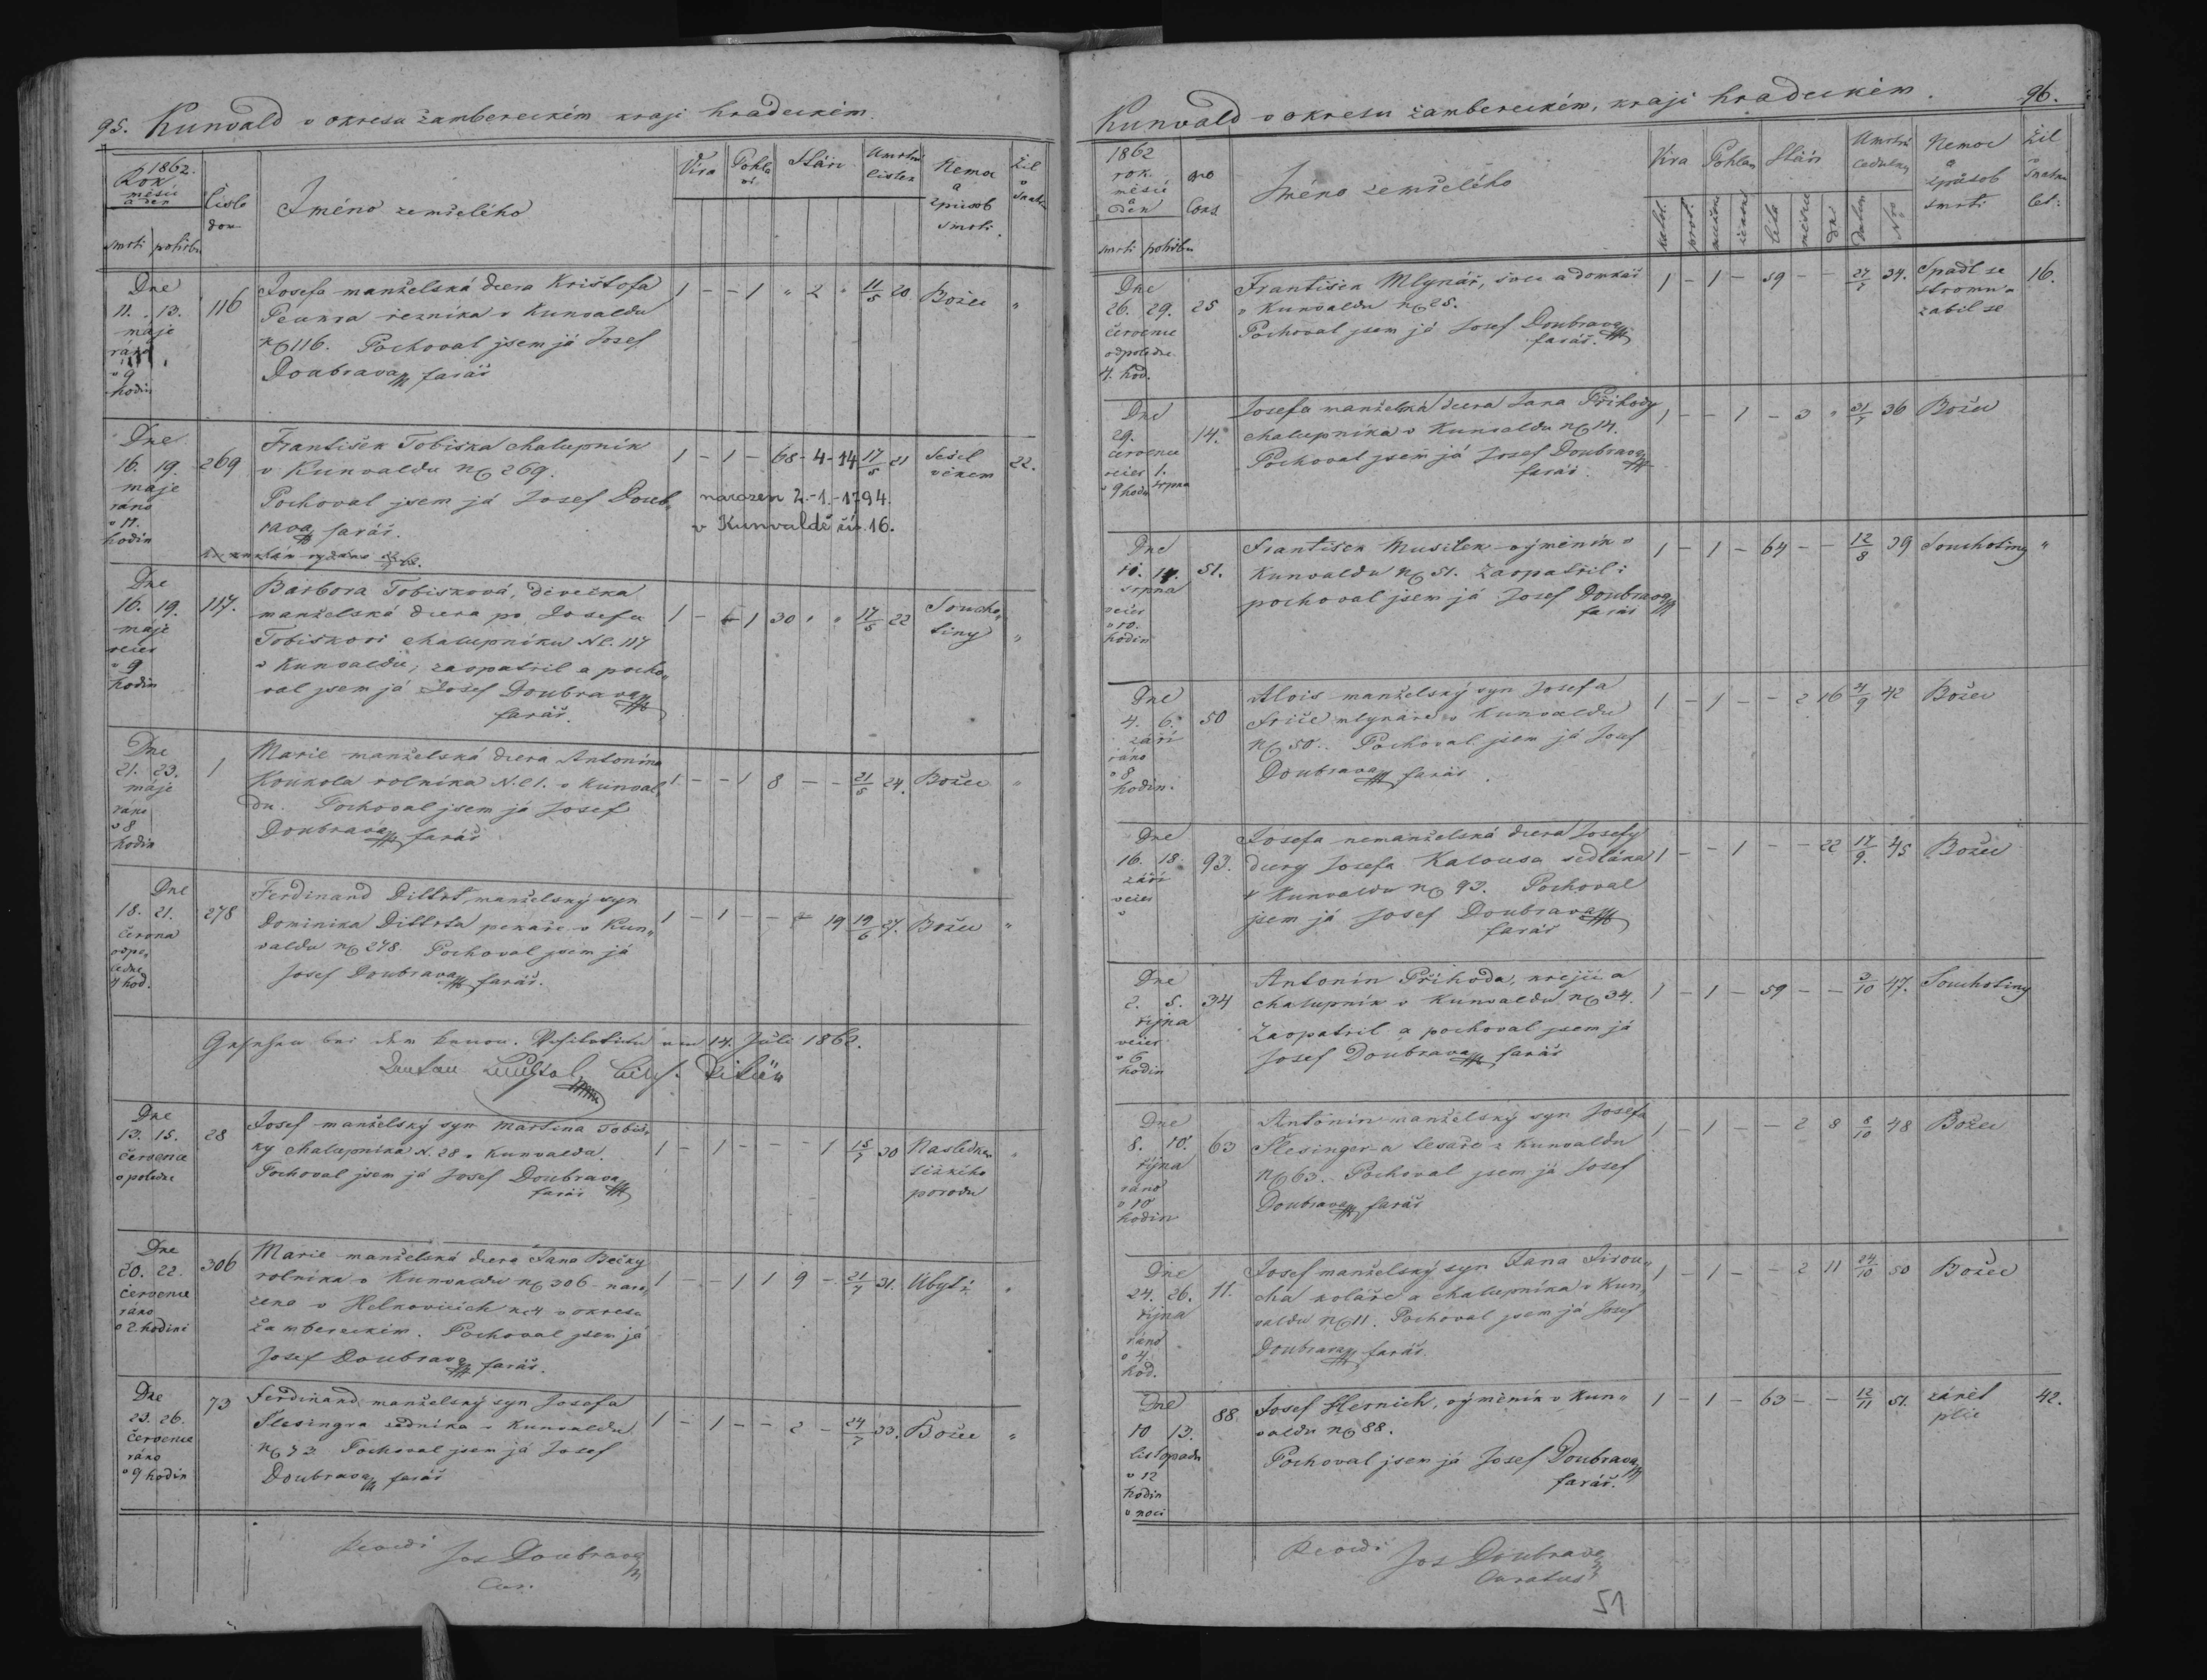 95. Kunvald v okresu žambereckém kraji hradeckém.
1862.
Rok
měsíc
a den
smrti pohřbu
Číslo
dom.
Jméno zemřelého
Víra
Pohla
ví.
Stáří
Umrtní
lístek
Nemoc
a
způsob
smrti.
Žil
v
Dne
11. 13.
máje
ráno
v 9
hodin
116
Josefa manželská dcera Krištofa
řezníka v Kunvaldu
No 116. Pochoval jsem já Josef
Doubrava farář
1 - - 1 " 2 " 11/5 20 Božec "
Dne
16. 19.
máje
ráno
v 11.
hodin
269
František Tobiska chalupník
v Kunvaldu No 269.
Pochoval jsem já Josef Doub„
rava farář.
1 - 1 - 68 - 4 - 14 17/5 21 Sešel
věkem
22.
narozen 2.-1.-1794.
v Kunvaldě čís. 16.
Dne
16. 19.
máje
večer
v 9
hodin
117.
Barbora Tobisková, děvečka
manželská dcera po Josefu
Tobiskovi chalupníku N. 117
v Kunvaldu, zaopatřil a pocho„
val jsem já Josef Doubrava
farář.
1 - 1 30 " " 17/5 22 Soucho„
tiny "
Dne
21. 23.
máje
ráno
v 8
hodin
1
Marie manželská dcera Antonína
Koukola rolníka N. 1. v Kunval„
du. Pochoval jsem já Josef
Doubrava farář
1 - - 1 8 - - 21/5 24. Božec "
Dne
18. 21.
června
odpo„
ledne
4 hod.
278
Ferdinand Dittrt, manželský syn
Dominika Dittrta pekaře v Kun„
valdu No 278. Pochoval jsem já
Josef Doubrava farář.
1 - 1 - - 19 19/6 27. Božec "
14. Juli 1862.
Dne
13. 15.
července
o poledne
28
Josef manželský syn Martina Tobis„
ky chalupníka N. 28 v Kunvaldu.
Pochoval jsem já Josef Doubrava
farář
1 - 1 - - - 1 15/7 30 Následkem
těžkého
porodu
Dne
20. 22.
července
ráno
o 2. hodině
306
Marie manželská dcera Jana Bečky
rolníka v Kunvaldu No 306 naro„
zena v Helkovicích No 4 v okresu
žambereckém. Pochoval jsem já
Josef Doubrava farář.
1 - - 1 1 9 - 21/7 31. Úbytě
Dne
23. 26.
července
ráno
v 9 hodin
73
Ferdinand manželský syn Josefa
Šlesingra zedníka v Kunvaldu
No 73. Pochoval jsem já Josef
Doubrava farář
1 - 1 - - 2 - 24/7 33. Božec "
Revidi Jos Doubrava
Cur.
Kunvald v okresu žambereckém, kraji hradeckém. 96.
1862
rok
měsíc
a
den
smrti pohřbu
No
Cons
Jméno zemřelého
Víra
Pohlaví
Stáří
Umrtní
cedulka
Nemoc
a
způsob
smrti
Žil
v
let:
Dne
26. 29.
července
odpoledne
4. hod.
25
František Mlynář, švec a domkář
v Kunvaldu No 25.
Pochoval jsem já Josef Doubrava
farář.
1 - 1 - 59 - - 27/7 34. Spadl se
stromu a
zabil se
16.
Dne
29.
července
večer 1.
v 9 hodin srpna
14.
Josefa manželská dcera Jana Příhody
chalupníka v Kunvaldu No 14.
Pochoval jsem já Josef Doubrava
farář.
1 - - 1 - 3 " 31/7 36 Božec
Dne
srpna
večer
v 10.
hodin
51.
František Musílek výměník v
Kunvaldu No 51. Zaopatřil i
pochoval jsem já Josef Doubrava
farář
1 - 1 - 64 - - 12/8 39 Souchotiny "
Dne
4. 6.
září
ráno
v 8
hodin.
50
Alois manželský syn Josefa
mlynáře v Kunvaldu
No 50. Pochoval jsem já Josef
Doubrava farář.
1 - 1 - - 2 16 4/9 42 Božec
Dne
16. 18.
září
večer
v
93.
Josefa nemanželská dcera Josefy
dcery Josefa Kalousa sedláka
v Kunvaldu No 93. Pochoval
jsem já Josef Doubrava
farář
1 - - 1 - - 22 17/9. 45 Božec
Dne
2. 5.
října
večer
v 6
hodin
34
Antonín Příhoda, krejčí a
chalupník v Kunvaldu No 34.
Zaopatřil a pochoval jsem já
Josef Doubrava farář
1 - 1 - 59 - - 3/10 47. Souchotiny
Dne
8. 10.
října
ráno
v 10
hodin
63
Antonín manželský syn Josefa
Šlesinger-a tesaře z Kunvaldu
No 63. Pochoval jsem já Josef
Doubrava farář
1 - 1 - - 2 8 8/10 48 Božec
Dne
24. 26.
října
ráno
v 4
hod.
11.
Josef manželský syn Jana Jirou„
cha koláře a chalupníka v Kun„
valdu No 11. Pochoval jsem já Josef
Doubrava farář.
1 - 1 - - 2 11 24/10 50 Božec
Dne
10 13.
listopadu
v 12
hodin
v noci
88.
Josef Hernich, výměník v Kun„
valdu No 88.
Pochoval jsem já Josef Doubrava
farář.
1 - 1 - 63 - - 12/11 51. zánět
plic
42.
Revidi Jos Doubrava
Curatus
51